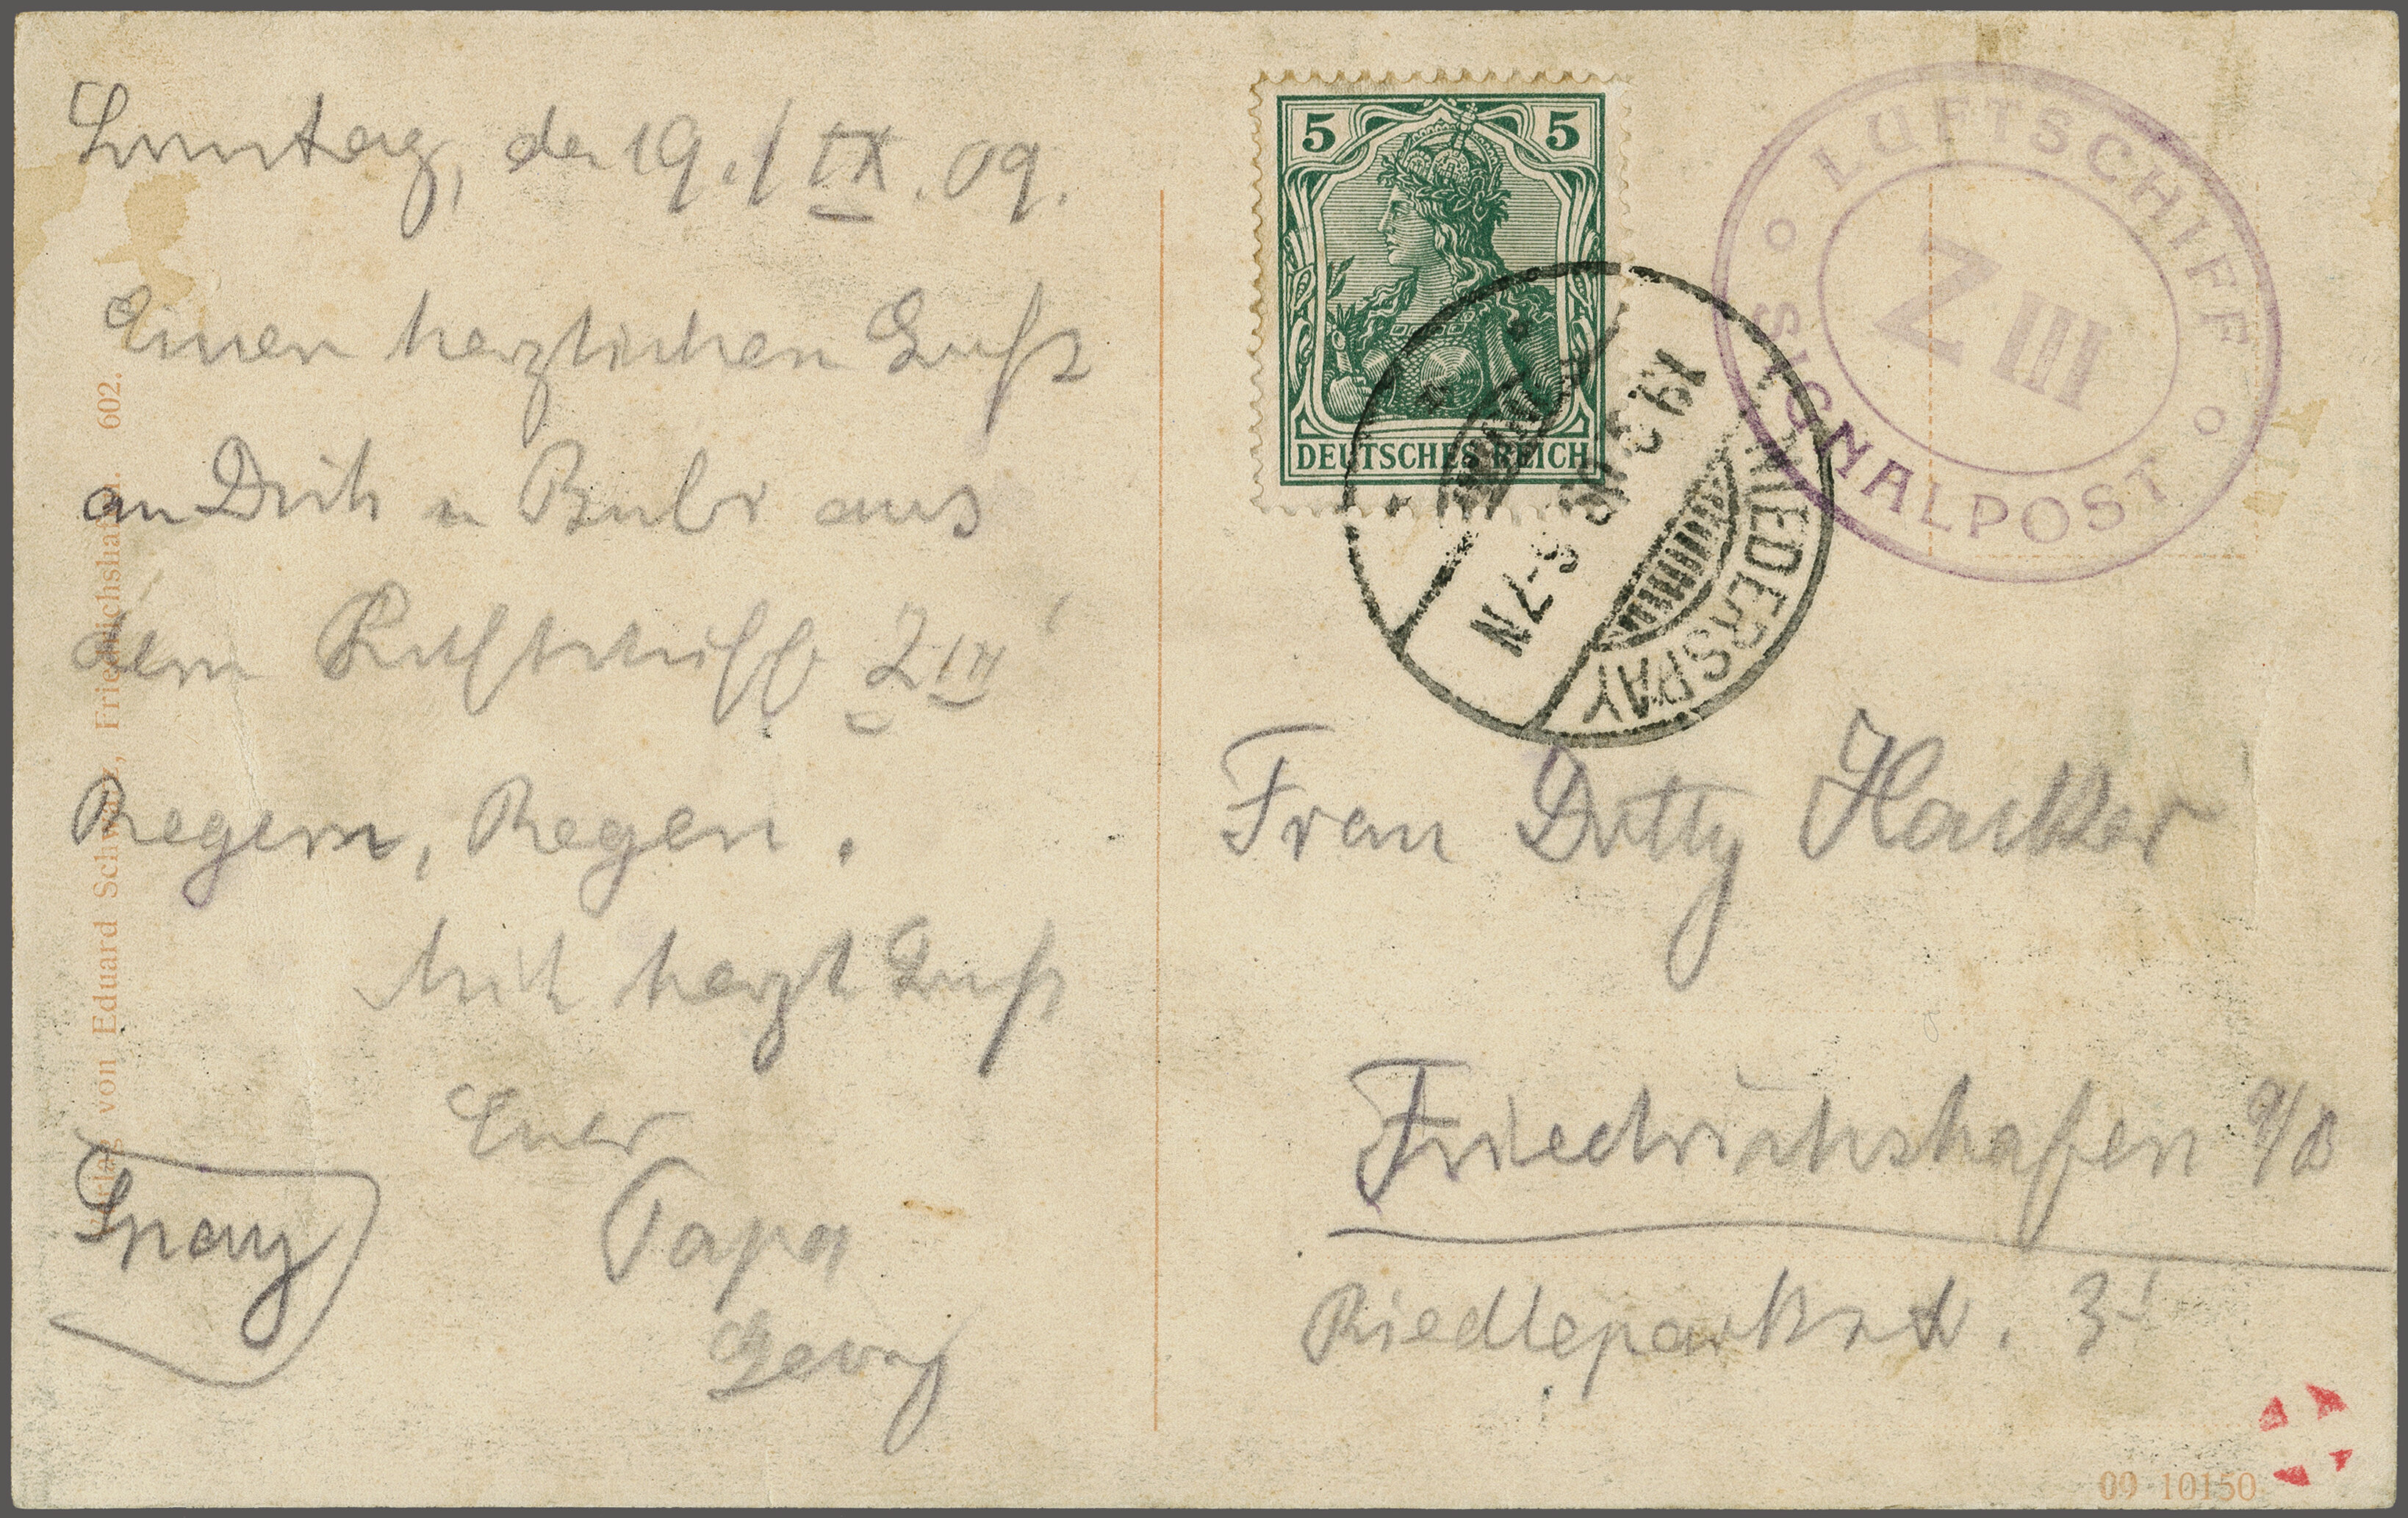 Sonntag, den 19./IX. 09.
Einen herzlichen Gruß
an Dich u Bubi aus
dem Luftschiff Z III
Regen, Regen.
Mit herzl Gruß
Euer
Papa
Georg
Spay
Verlag von Eduard Schwarz, Friedrichshafen. 602.
5 5
DEUTSCHES REICH
NIEDERSPAY
19.9.09
6-7N
LUFTSCHIFF
Z III
SIGNALPOST
Frau Dotty
Friedrichshafen a/B
Riedleparkstr.
09 10150